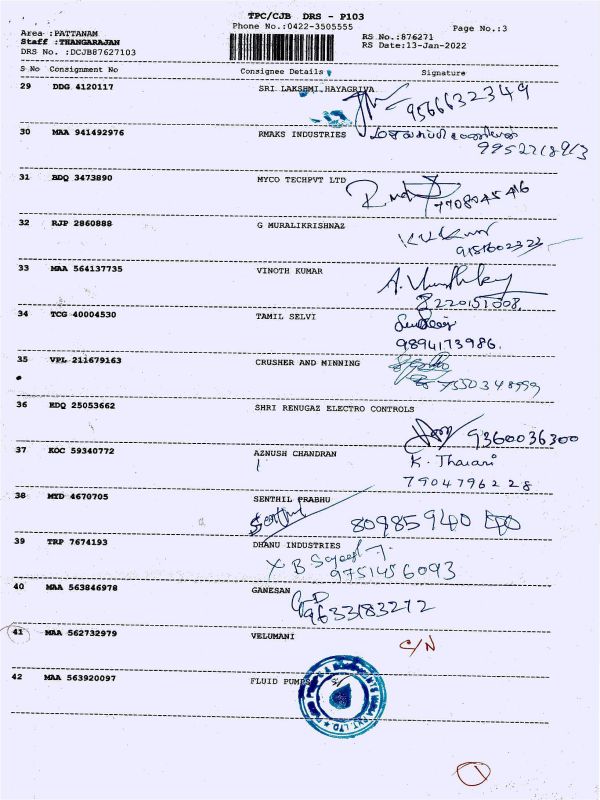 TPC/CJB DRS - P103
Phone No.:0422-3505555
Page No.:3
Area :PATTANAM
Staff :THANGARAJAN
DRS No. :DCJB87627103
RS No.:876271
RS Date:13-Jan-2022
S No Consignment No Consignee Details Signature
29 DDG 4120117 SRI LAKSHMI HAYAGRIVA
9566632349
30 MAA 941492976 RMAKS INDUSTRIES
31 BDQ 3473890 MYCO TECHPVT LTD
7708045416
32 RJP 2860888 G MURALIKRISHNAZ
33 MAA 564137735 VINOTH KUMAR
8220151008.
34 TCG 40004530 TAMIL SELVI
9894173986.
35 VPL 211679163 CRUSHER AND MINNING
36 EDQ 25053662 SHRI RENUGAZ ELECTRO CONTROLS
9360036300
37 KOC 59340772 AZNUSH CHANDRAN
K. Tharani
7904796228
38 MYD 4670705 SENTHIL PRABHU
39 TRP 7674193 DHANU INDUSTRIES
9751456093
40 MAA 563846978 GANESAN
9633183272
41 MAA 562732979 VELUMANI
C/N
42 MAA 563920097 FLUID PUMPS
1